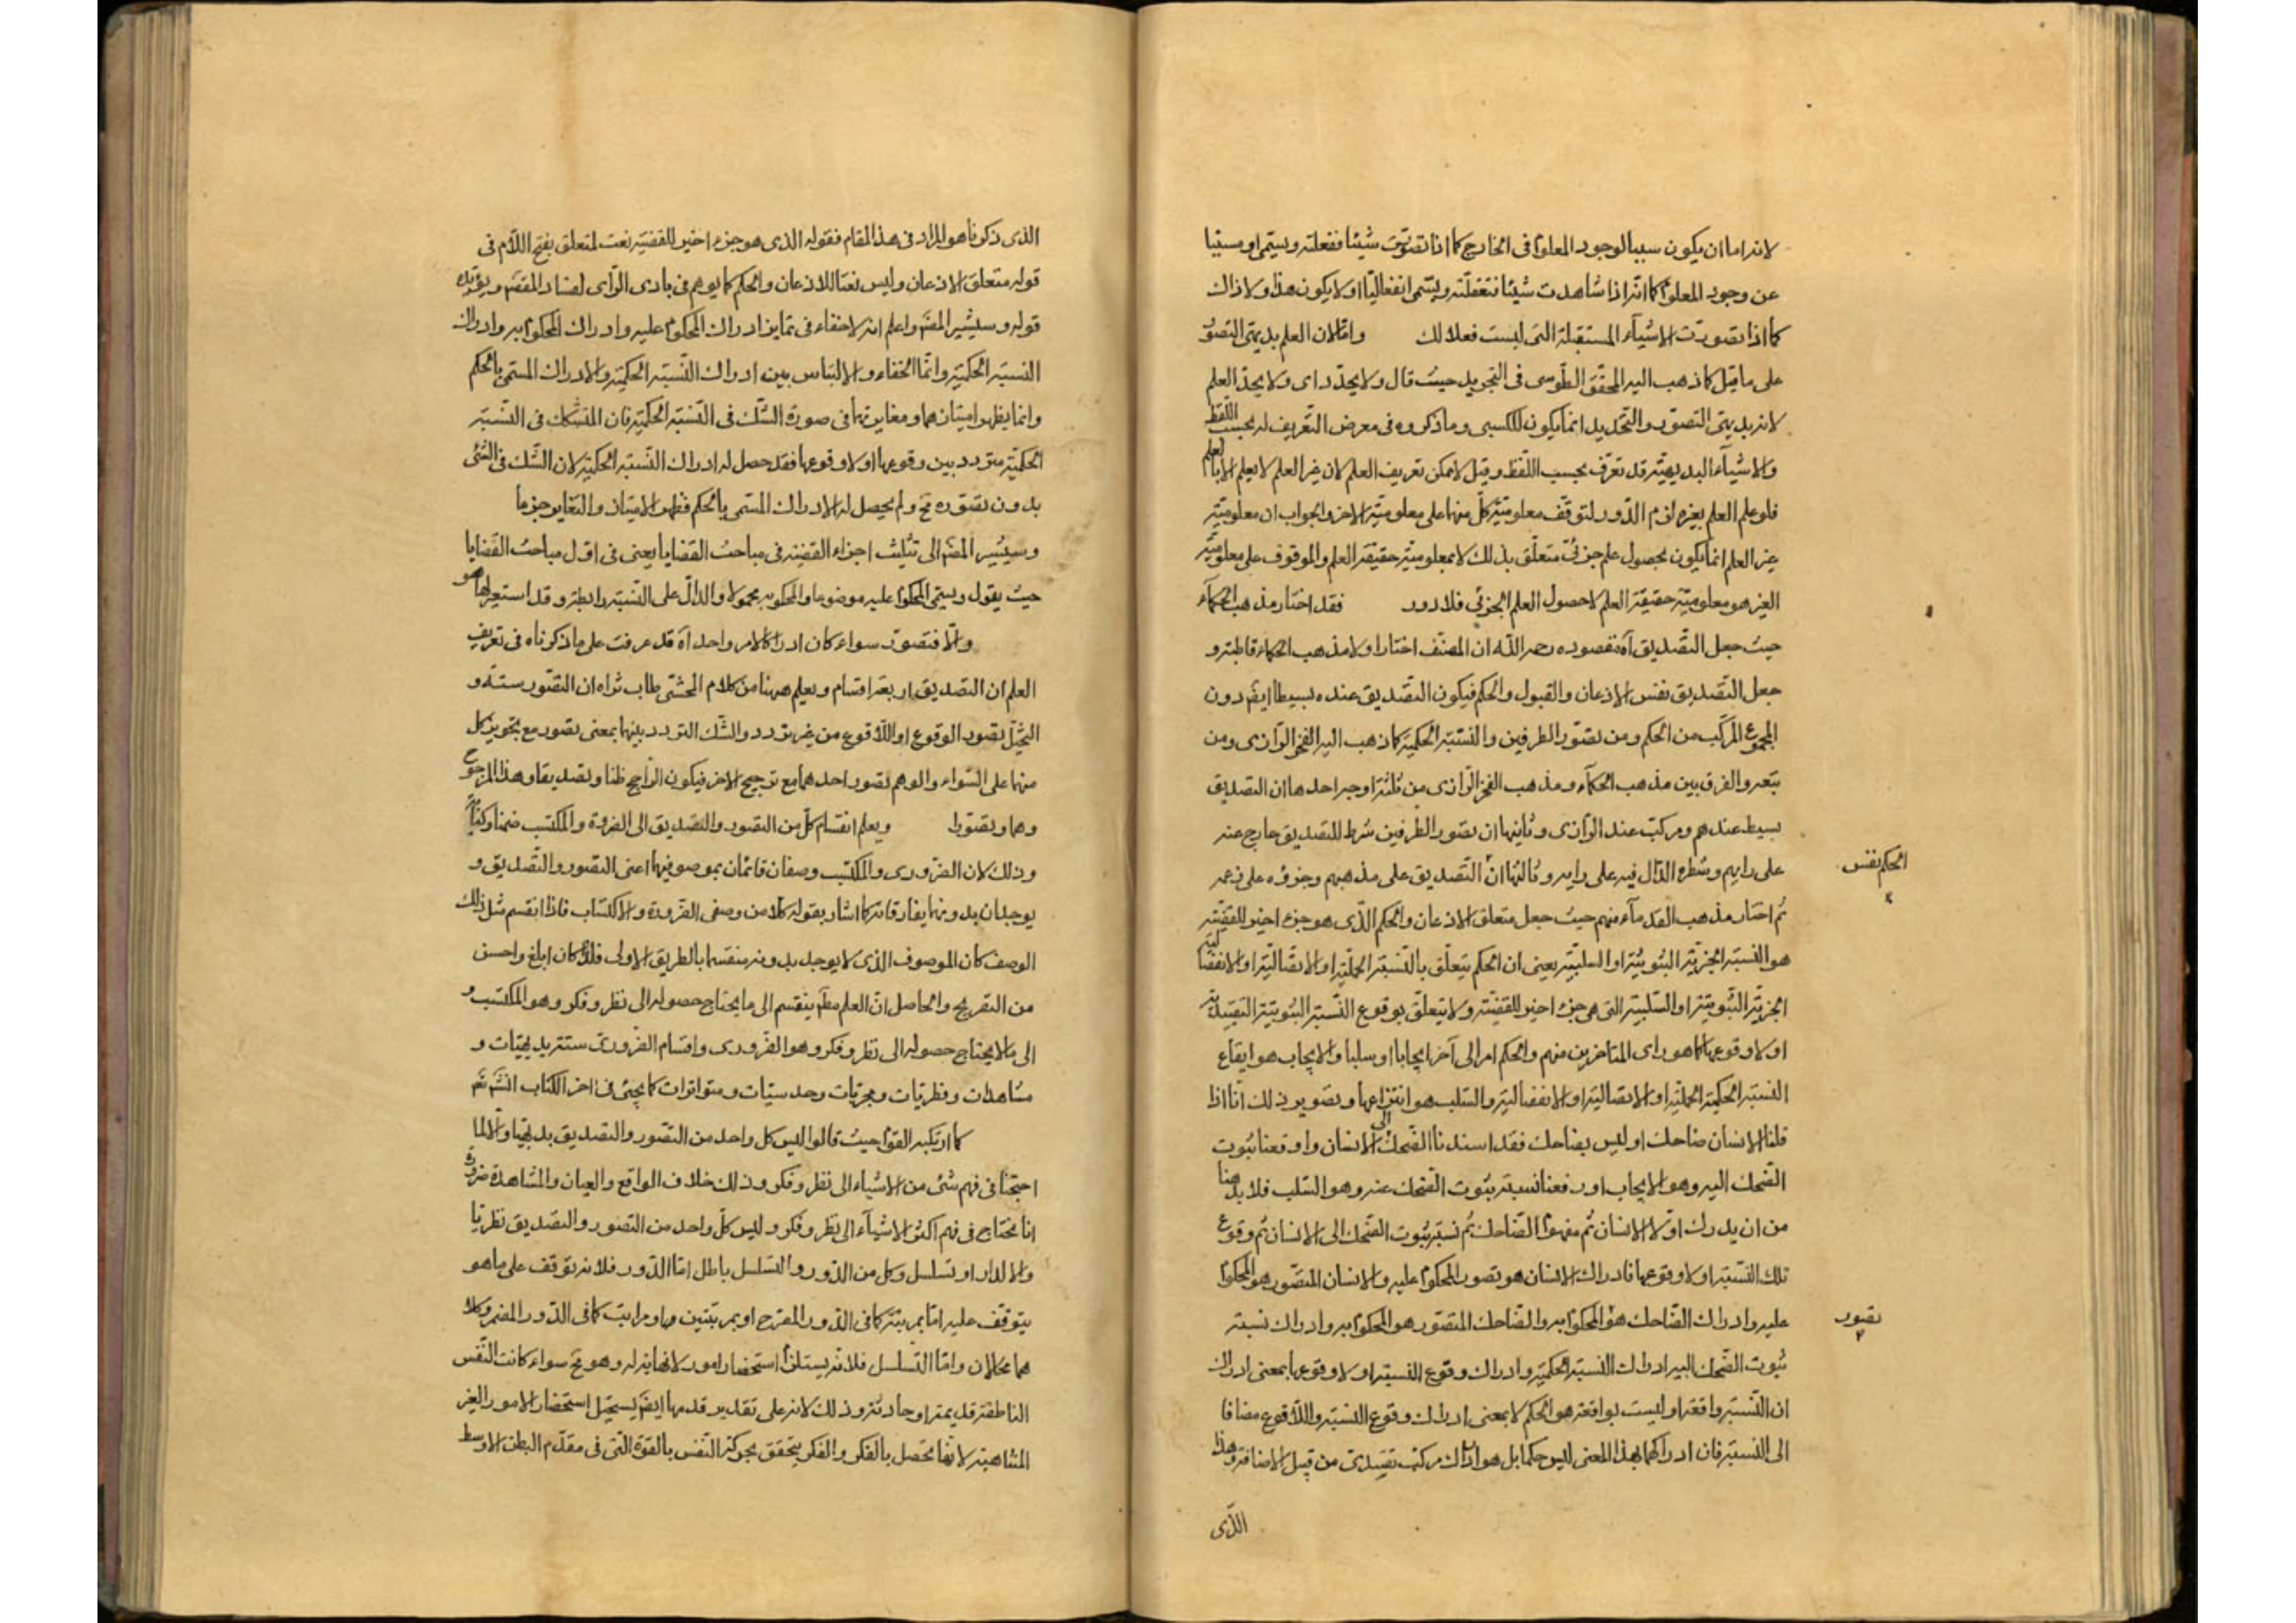 لانه اما ان يكون سببا لوجود المعلوم فى الخارج كما اذا تصورت شيئا ففعلته ويسمى او مسببا
عن وجود المعلوم كما انه اذا شاهدت شيئا فتعقلته ويسمى انفعاليا او لا يكون هذا ولا ذاك
كما اذا تصورت الاشياء المستقبلة التى ليست فعلا لك واما لان العلم بديهى التصور
على ما قيل كما ذهب اليه المحقق الطوسى فى التجريد حيث قال ولا يحد اى ولا يحد العلم
لانه بديهى التصور والتحديد انما يكون للكسبى وما ذكروه فى معرض التعريف له بحسب اللفظ
والاشياء البديهية قد تعرف بحسب اللفظ وقيل لا يمكن تعريف العلم لان غير العلم لا يعلم الا بالعلم
فلو علم العلم بغيره لزم الدور لتوقف معلومية كل منهما على معلومية الاخر والجواب ان معلومية
غير العلم انما يكون بحصول علم جزئى متعلق بذلك لا بمعلومية حقيقة العلم والموقوف على معلومية
الغير هو معلومية حقيقة العلم لا حصول العلم الجزئى فلا دور فقد اختار مذهب الحكماء
حيث جعل التصديق آه مقصوده رحمه الله ان المصنف اختار اولا مذهب الحكماء قاطبة و
جعل التصديق نفس الاذعان والقبول والحكم فيكون التصديق عنده بسيطا ايضا دون
المجموع المركب من الحكم ومن تصور الطرفين والنسبة الحكمية كما ذهب اليه الفخر الرازى ومن
تبعه والفرق بين مذهب الحكماء ومذهب الفخر الرازى من ثلثة اوجه احدها ان التصديق
بسيط عندهم ومركب عند الرازى وثانيها ان تصور الطرفين شرط للتصديق خارج عنه
على رايهم وشطره الداخل فيه على رايه وثالثها ان التصديق على مذهبهم وجزؤه على زعمه
الحكم نفس
ثم اختار مذهب القدماء منهم حيث جعل متعلق الاذعان والحكم الذى هو جزء اخير للقضية
هو النسبة الخبرية الثبوتية او السلبية يعنى ان الحكم يتعلق بالنسبة الحملية او الاتصالية او الانفصالية
الخبرية الثبوتية او السلبية التى هى جزء اخير للقضية ولا يتعلق بوقوع النسبة الثبوتية التقييدية
او لا وقوعها كما هو راى المتاخرين منهم والحكم امر الى آخر ايجابا او سلبا والايجاب هو ايقاع
النسبة الحكمية الحملية او الاتصالية او الانفصالية والسلب هو انتزاعها وتصوير ذلك انا اذا
قلنا الانسان ضاحك او ليس بضاحك فقد اسندنا الضحك الى الانسان واوقعنا ثبوت
الضحك اليه وهو الايجاب او رفعنا نسبة ثبوت الضحك عنه وهو السلب فلا بد هنا
من ان يدرك اولا الانسان ثم مفهوم الضاحك ثم نسبة ثبوت الضحك الى الانسان ثم وقوع
تلك النسبة او لا وقوعها فادراك الانسان هو تصور المحكوم عليه والانسان المتصور هو المحكوم
عليه وادراك الضاحك هو المحكوم به والضاحك المتصور هو المحكوم به وادراك نسبة
تصور
ثبوت الضحك اليه ادراك النسبة الحكمية وادراك وقوع النسبة او لا وقوعها بمعنى ادراك
ان النسبة واقعة او ليست بواقعة هو الحكم لا بمعنى ادراك وقوع النسبة واللا وقوع مضافا
الى النسبة فان ادراكهما بهذا المعنى ليس حكما بل هو ادراك مركب تقييدى من قبيل الاضافة وهذا
الذى
الذى ذكرناه هو المراد فى هذا المقام فقوله الذى هو جزء اخير للقضية نعت لمتعلق بفتح اللام فى
قوله متعلق الاذعان وليس نعتا للاذعان والحكم كما يوهم فى بادى الراى لفساد المقصم ويؤيده
قوله وسيشير المصنم واعلم انه لا خفاء فى تمايز ادراك المحكوم عليه وادراك المحكوم به وادراك
النسبة الحكمية وانما الخفاء والالتباس بين ادراك النسبة الحكمية والادراك المسمى بالحكم
وانما يظهر امتيازهما ومغايرتهما فى صورة الشك فى النسبة الحكمية فان المتشكك فى النسبة
الحكمية متردد بين وقوعها او لا وقوعها فقد حصل له ادراك النسبة الحكمية لان الشك فى الشئ
بدون تصوره مح ولم يحصل له الادراك المسمى بالحكم فظهر الامتياز والتغاير جزما
وسيشير المصنم الى تثليث اجزاء القضية فى مباحث القضايا يعنى فى اول مباحث القضايا
حيث يقول ويسمى المحكوم عليه موضوعا والمحكوم به محمولا والدال على النسبة رابطة وقد استعير لها هو
والا فتصور سواء كان ادراكا لامر واحد آه قد عرفت على ما ذكرناه فى تعريف
العلم ان التصديق اربعة اقسام ويعلم ههنا من كلام المحشى طاب ثراه ان التصور ستة و
التخيل تصور الوقوع او اللا وقوع من غير تردد والشك التردد بينهما بمعنى تصور مع تجويز كل
منهما على السواء والوهم تصور احدهما مع ترجيح الاخر فيكون الراجح ظنا وتصديقا وهذا المرجوح
وهما وتصورا ويعلم انقسام كل من التصور والتصديق الى الضرورة والمكتسب ضمنا وكناية
وذلك لان الضرورى والمكتسب وصفان قائمان بموصوفيهما اعنى التصور والتصديق و
يوجدان بدونهما يفارقانه كما اشار بقوله كلا من وصفى الضرورة والاكتساب فاذا انقسم مثل ذلك
الوصف كان الموصوف الذى لا يوجد بدونه منقسما بالطريق الاولى فلذا كان ابلغ واحسن
من التصريح والحاصل ان العلم مطم ينقسم الى ما يحتاج حصوله الى نظر وفكر وهو المكتسب و
الى ما لا يحتاج حصوله الى نظر وفكر وهو الضرورى واقسام الضرورى ستة بديهيات و
مشاهدات وفطريات ومجربات وحدسيات ومتواترات كما يجئ فى اخر الكتاب انشم تم
كما ارتكبه القوم حيث قالوا ليس كل واحد من التصور والتصديق بديهيا والا لما
احتجنا فى فهم شئ من الاشياء الى نظر وفكر وذلك خلاف الواقع والعيان والمشاهدة ضرورة
انا نحتاج فى فهم اكثر الاشياء الى نظر وفكر وليس كل واحد من التصور والتصديق نظريا
والا لدار او تسلسل وكل من الدور والتسلسل باطل اما الدور فلانه توقف على ما هو
يتوقف عليه اما بمرتبة كما فى الدور المصرح او بمرتبتين او مراتب كما فى الدور المضمر وكلا
هما محالان واما التسلسل فلانه يستلزم استحضار امور لا نهاية له وهو مح سواء كانت النفس
الناطقة قديمة او حادثة وذلك لانه على تقدير قدمها ايضم يستحيل استحضار الامور الغير
المتناهية لانها تحصل بالفكر والفكر يتحقق بحركة النفس بالقوة التى فى مقدم البطن الاوسط